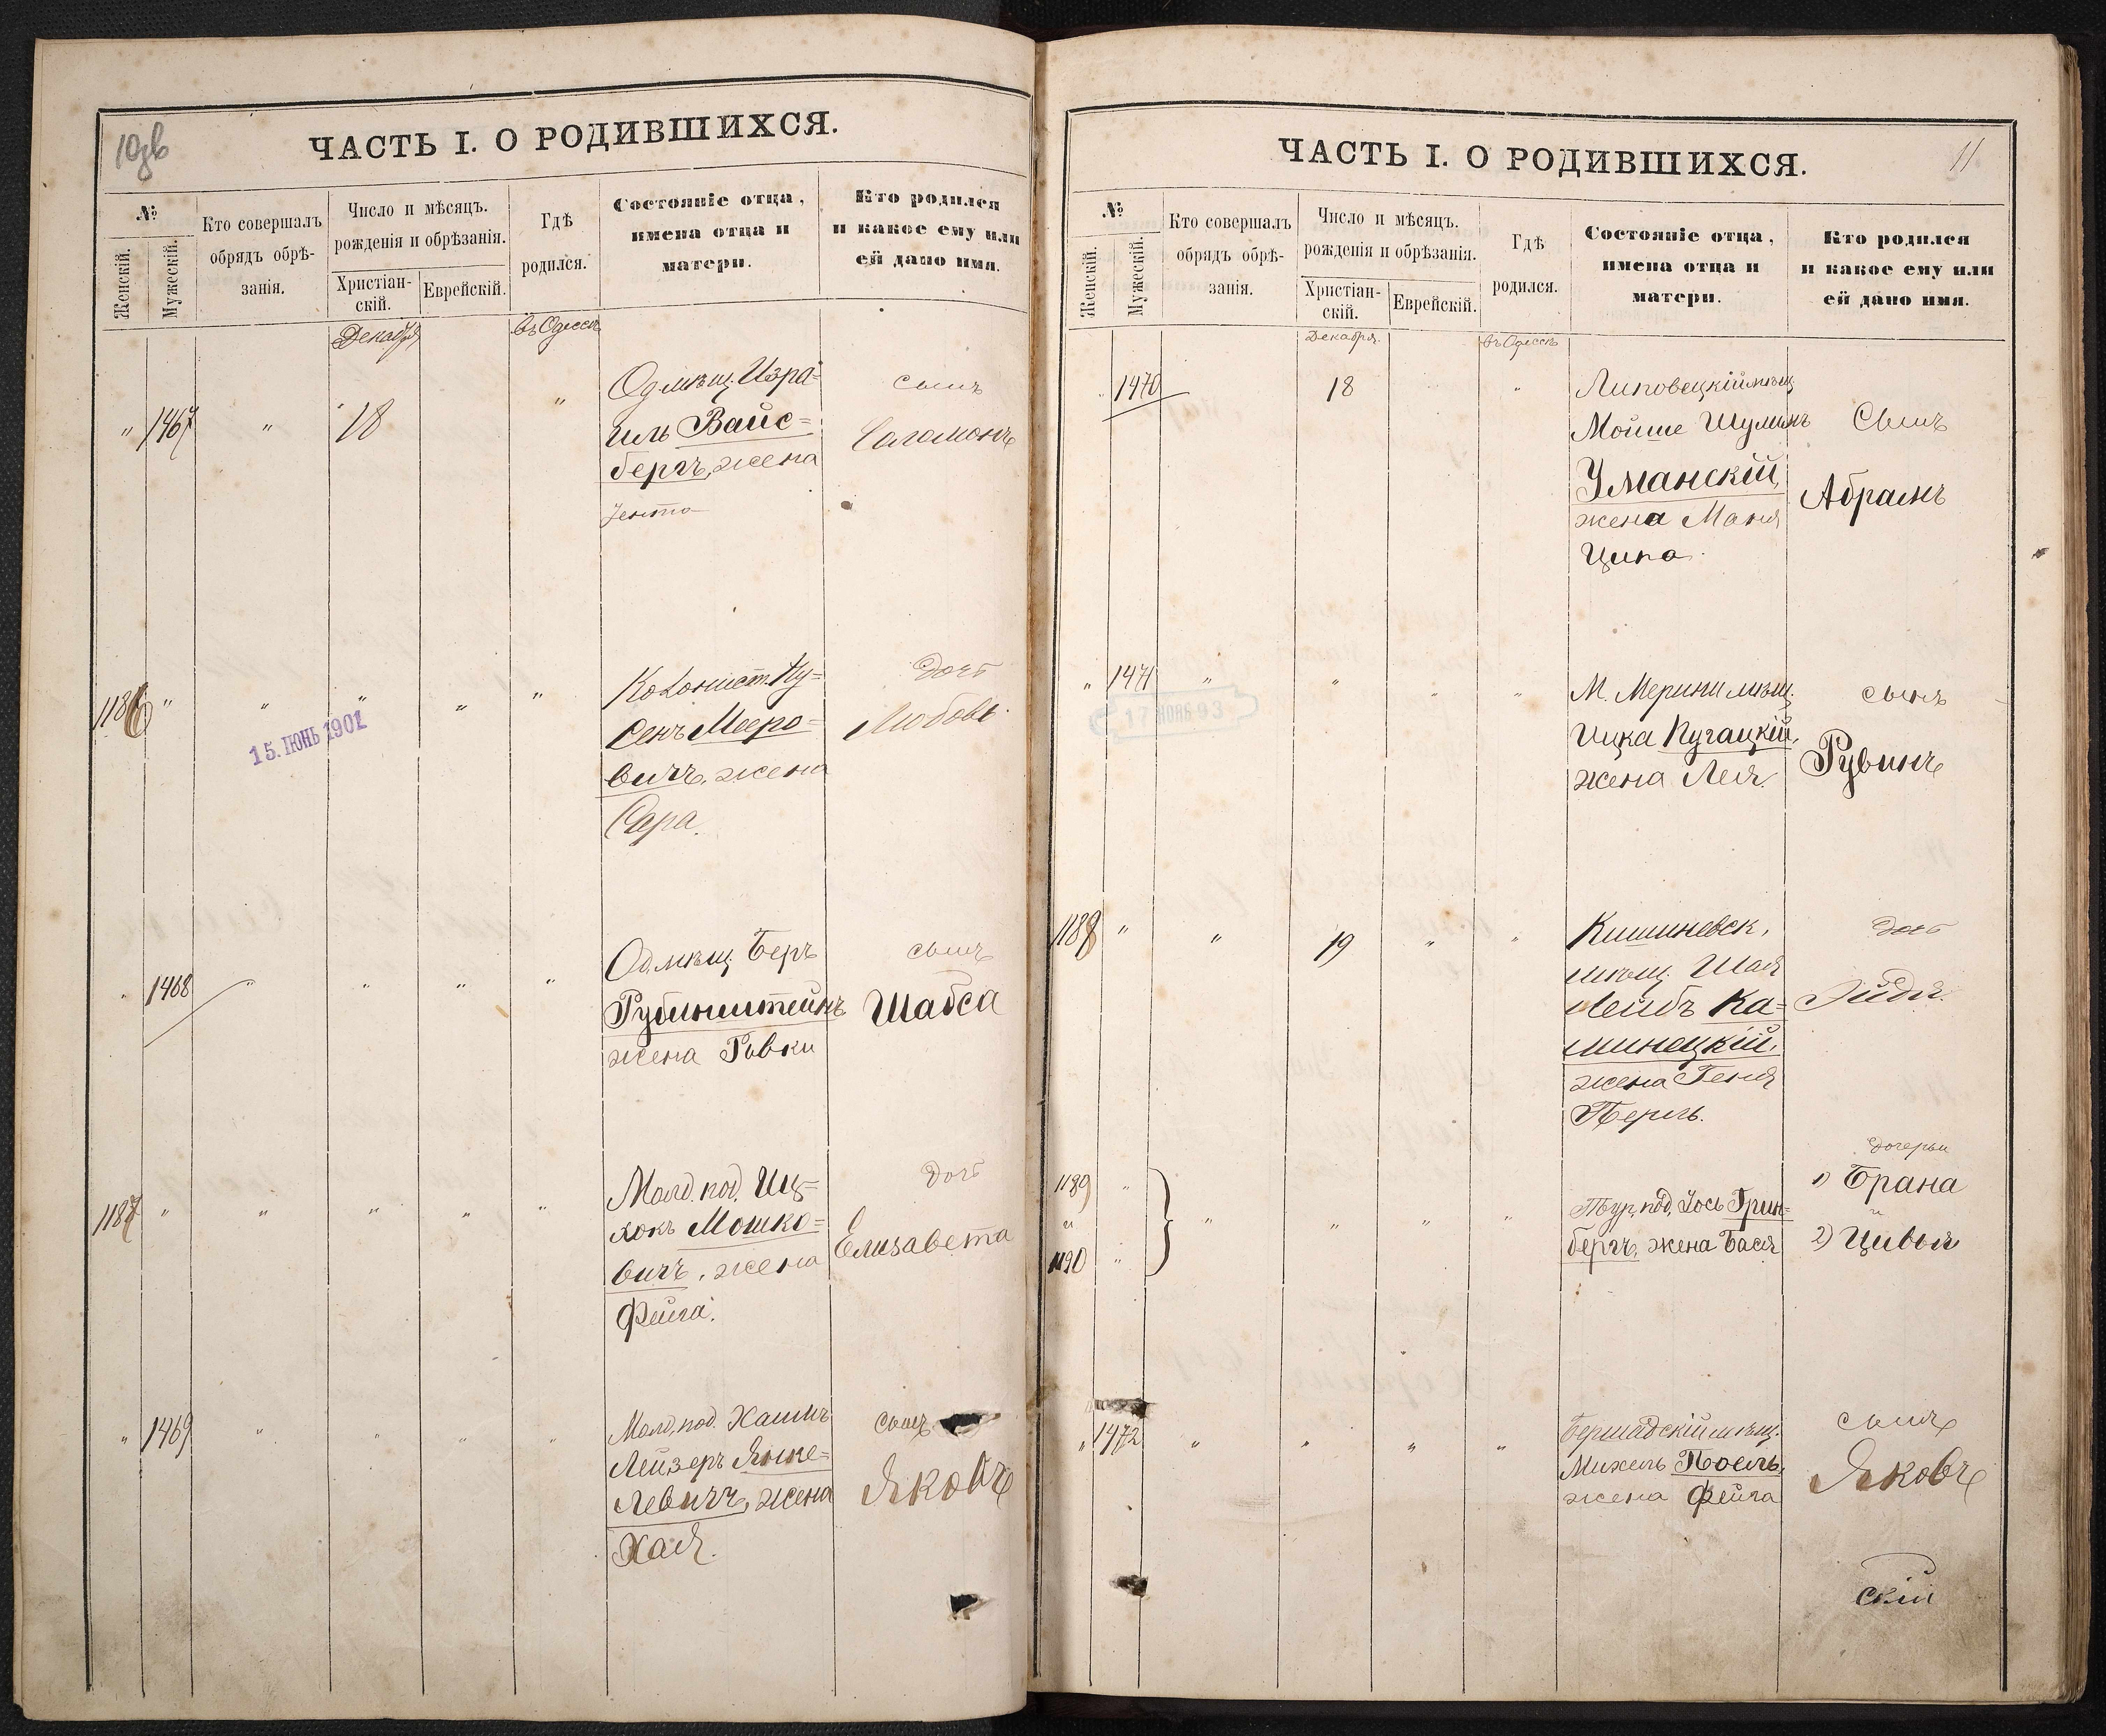 10зв
ЧАСТЬ I. О РОДИВШИХСЯ.
№
Женскій.
Мужескій.
Кто совершалъ
обрядъ обрѣ-
занія.
Число и мѣсяцъ.
рожденія и обрѣзанія.
Христіан-
скій.
Еврейскій.
Гдѣ
родился.
Состояніе отца,
имена отца и
матери.
Кто родился
и какое ему или
ей дано имя.
Декабря
въ Одессѣ
" 1467 " 18 "
Од. мѣщ. Изра-
иль Вайс=
бергъ, жена
Ента
сынъ
Саламонъ
1186 " " " " "
15. ІЮНЬ 1901
Колонист. Ну-
сенъ Меero=
вичъ, жена
Сара.
дочь
Любовь.
" 1468 " " " "
Од. мѣщ. Беръ
Рубинштейнъ
жена Ривки
сынъ
Шабса
1187 " " " " "
Молд. под. Иц=
хокъ Мошко=
вичъ, жена
Фейга.
дочь
Елизавета
" 1469 " " " "
Молд. под. Хаимъ
Лейзеръ Янке=
левичъ, жена
Хая.
сынъ
Яковъ
11
ЧАСТЬ I. О РОДИВШИХСЯ.
№
Женскій.
Мужескій.
Кто совершалъ
обрядъ обрѣ-
занія.
Число и мѣсяцъ.
рожденія и обрѣзанія.
Христіан-
скій.
Еврейскій.
Гдѣ
родился.
Состояніе отца,
имена отца и
матери.
Кто родился
и какое ему или
ей дано имя.
Декабря.
въ Одессѣ
" 1470 18 "
Липовецкій мѣщ
Мойше Шулимъ
Уманскій,
жена Маня
Ципа.
Сынъ
Абрамъ
" 1471 " " " "
93
М. Мерини мѣщ.
Ицка Пугацкій,
жена Лея.
сынъ
Рувинъ
1188 " " 19 " "
Кишиневск.
мѣщ. Шая
Лейбъ Ка=
минецкій.
жена Геня
Перль.
дочь
Эйдя.
1189 "
и
1190 "
" " " "
Тур. под. Іось Грин=
бергъ, жена Бася
дочерьи
1) Брана
и
2) Цивья
" 1472 " " " "
Бершадскій мѣщ.
Михель Поель,
жена Фейга
сынъ
Яковъ
скій